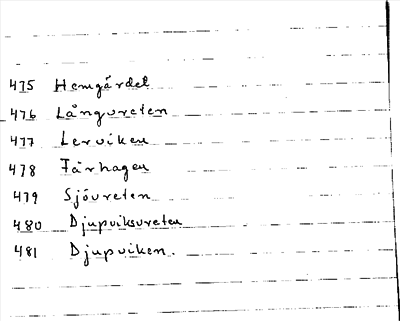 475 Hemgärdet
476 Långvreten
477 Lerviken
478 Fårhagen
479 Sjövreten
480 Djupviksvreten
481 Djupviken.